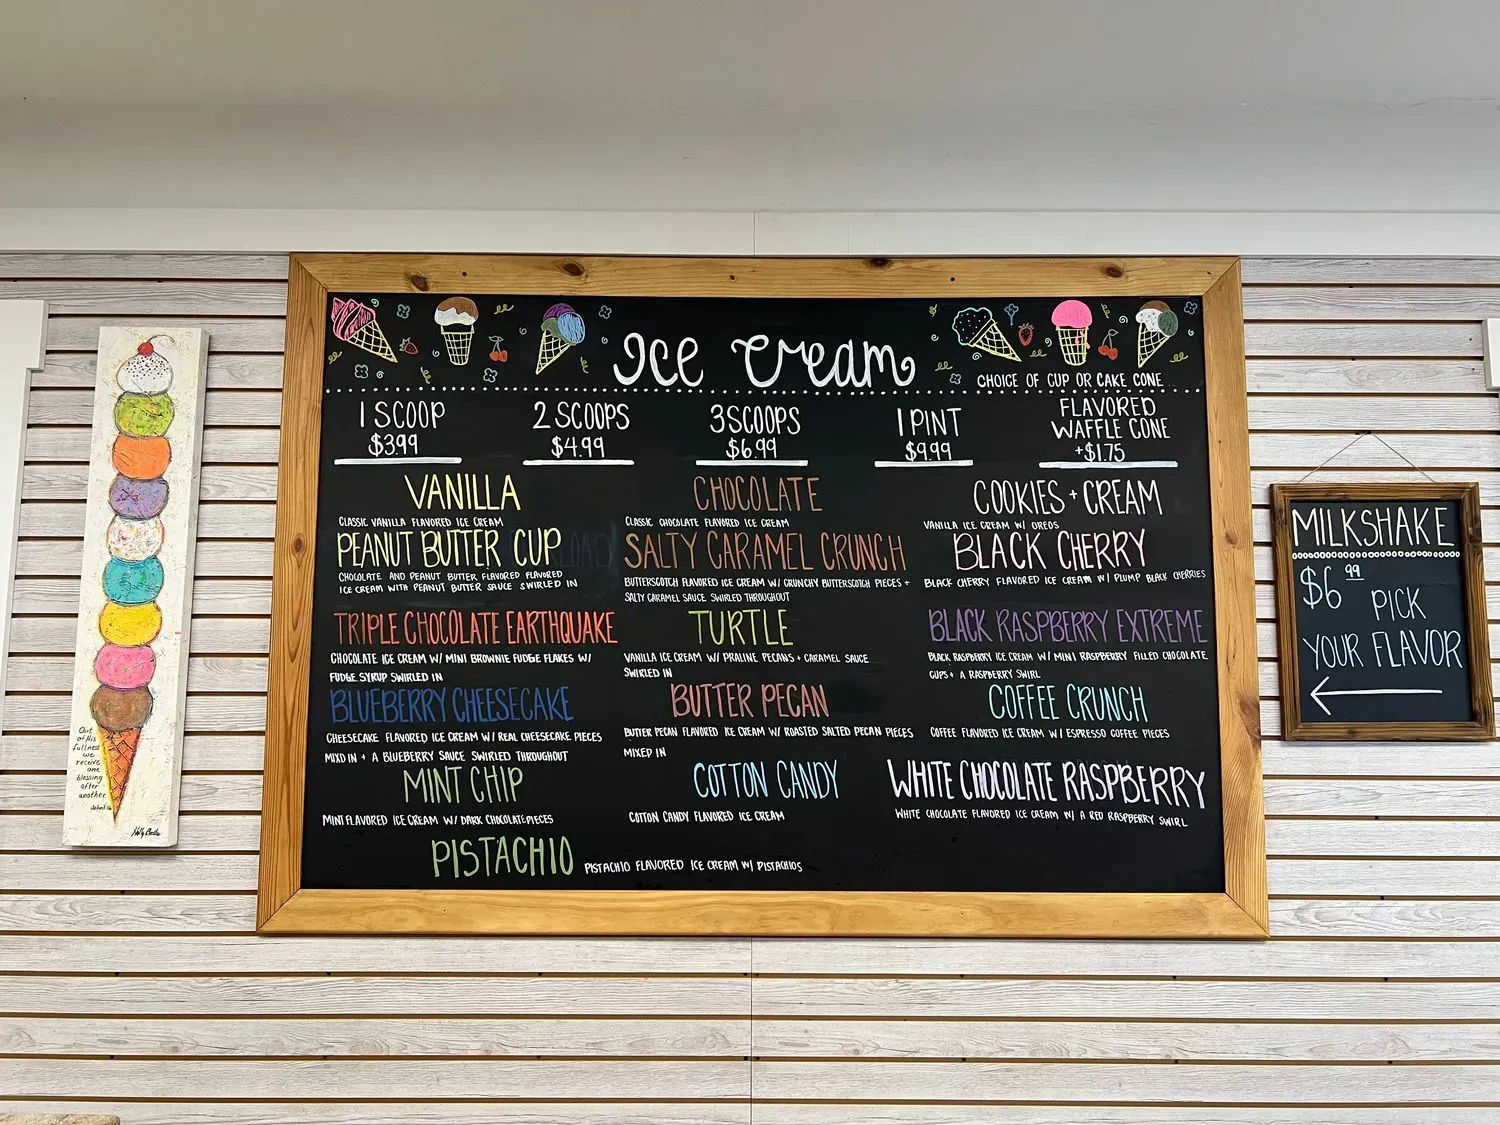 Ice Cream
CHOICE OF CUP OR CAKE CONE
1 SCOOP
$3.99
2 SCOOPS
$4.99
3 SCOOPS
$6.99
1 PINT
$9.99
FLAVORED
WAFFLE CONE
+$1.75
VANILLA
CLASSIC VANILLA FLAVORED ICE CREAM
PEANUT BUTTER CUP
CHOCOLATE AND PEANUT BUTTER FLAVORED FLAVORED
ICE CREAM WITH PEANUT BUTTER SAUCE SWIRLED IN
TRIPLE CHOCOLATE EARTHQUAKE
CHOCOLATE ICE CREAM W/ MINI BROWNIE FUDGE FLAKES W/
FUDGE SYRUP SWIRLED IN
BLUEBERRY CHEESECAKE
CHEESECAKE FLAVORED ICE CREAM W/ REAL CHEESECAKE PIECES
MIXD IN + A BLUEBERRY SAUCE SWIRLED THROUGHOUT
MINT CHIP
MINT FLAVORED ICE CREAM W/ DARK CHOCOLATE PIECES
PISTACHIO PISTACHIO FLAVORED ICE CREAM W/ PISTACHIOS
CHOCOLATE
CLASSIC CHOCOLATE FLAVORED ICE CREAM
SALTY CARAMEL CRUNCH
BUTTERSCOTCH FLAVORED ICE CREAM W/ CRUNCHY BUTTERSCOTCH PIECES +
SALTY CARAMEL SAUCE SWIRLED THROUGHOUT
TURTLE
VANILLA ICE CREAM W/ PRALINE PECANS + CARAMEL SAUCE
SWIRLED IN
BUTTER PECAN
BUTTER PECAN FLAVORED ICE CREAM W/ ROASTED SALTED PECAN PIECES
MIXED IN
COTTON CANDY
COTTON CANDY FLAVORED ICE CREAM
COOKIES + CREAM
VANILLA ICE CREAM W/ OREOS
BLACK CHERRY
BLACK CHERRY FLAVORED ICE CREAM W/ PLUMP BLACK CHERRIES
BLACK RASPBERRY EXTREME
BLACK RASPBERRY ICE CREAM W/ MINI RASPBERRY FILLED CHOCOLATE
CUPS + A RASPBERRY SWIRL
COFFEE CRUNCH
COFFEE FLAVORED ICE CREAM W/ ESPRESSO COFFEE PIECES
WHITE CHOCOLATE RASPBERRY
WHITE CHOCOLATE FLAVORED ICE CREAM W/ A RED RASPBERRY SWIRL
MILKSHAKE
$6.99 PICK
YOUR FLAVOR
Out
of His
fullness
we
receive
one
blessing
after
another.
John 1:16